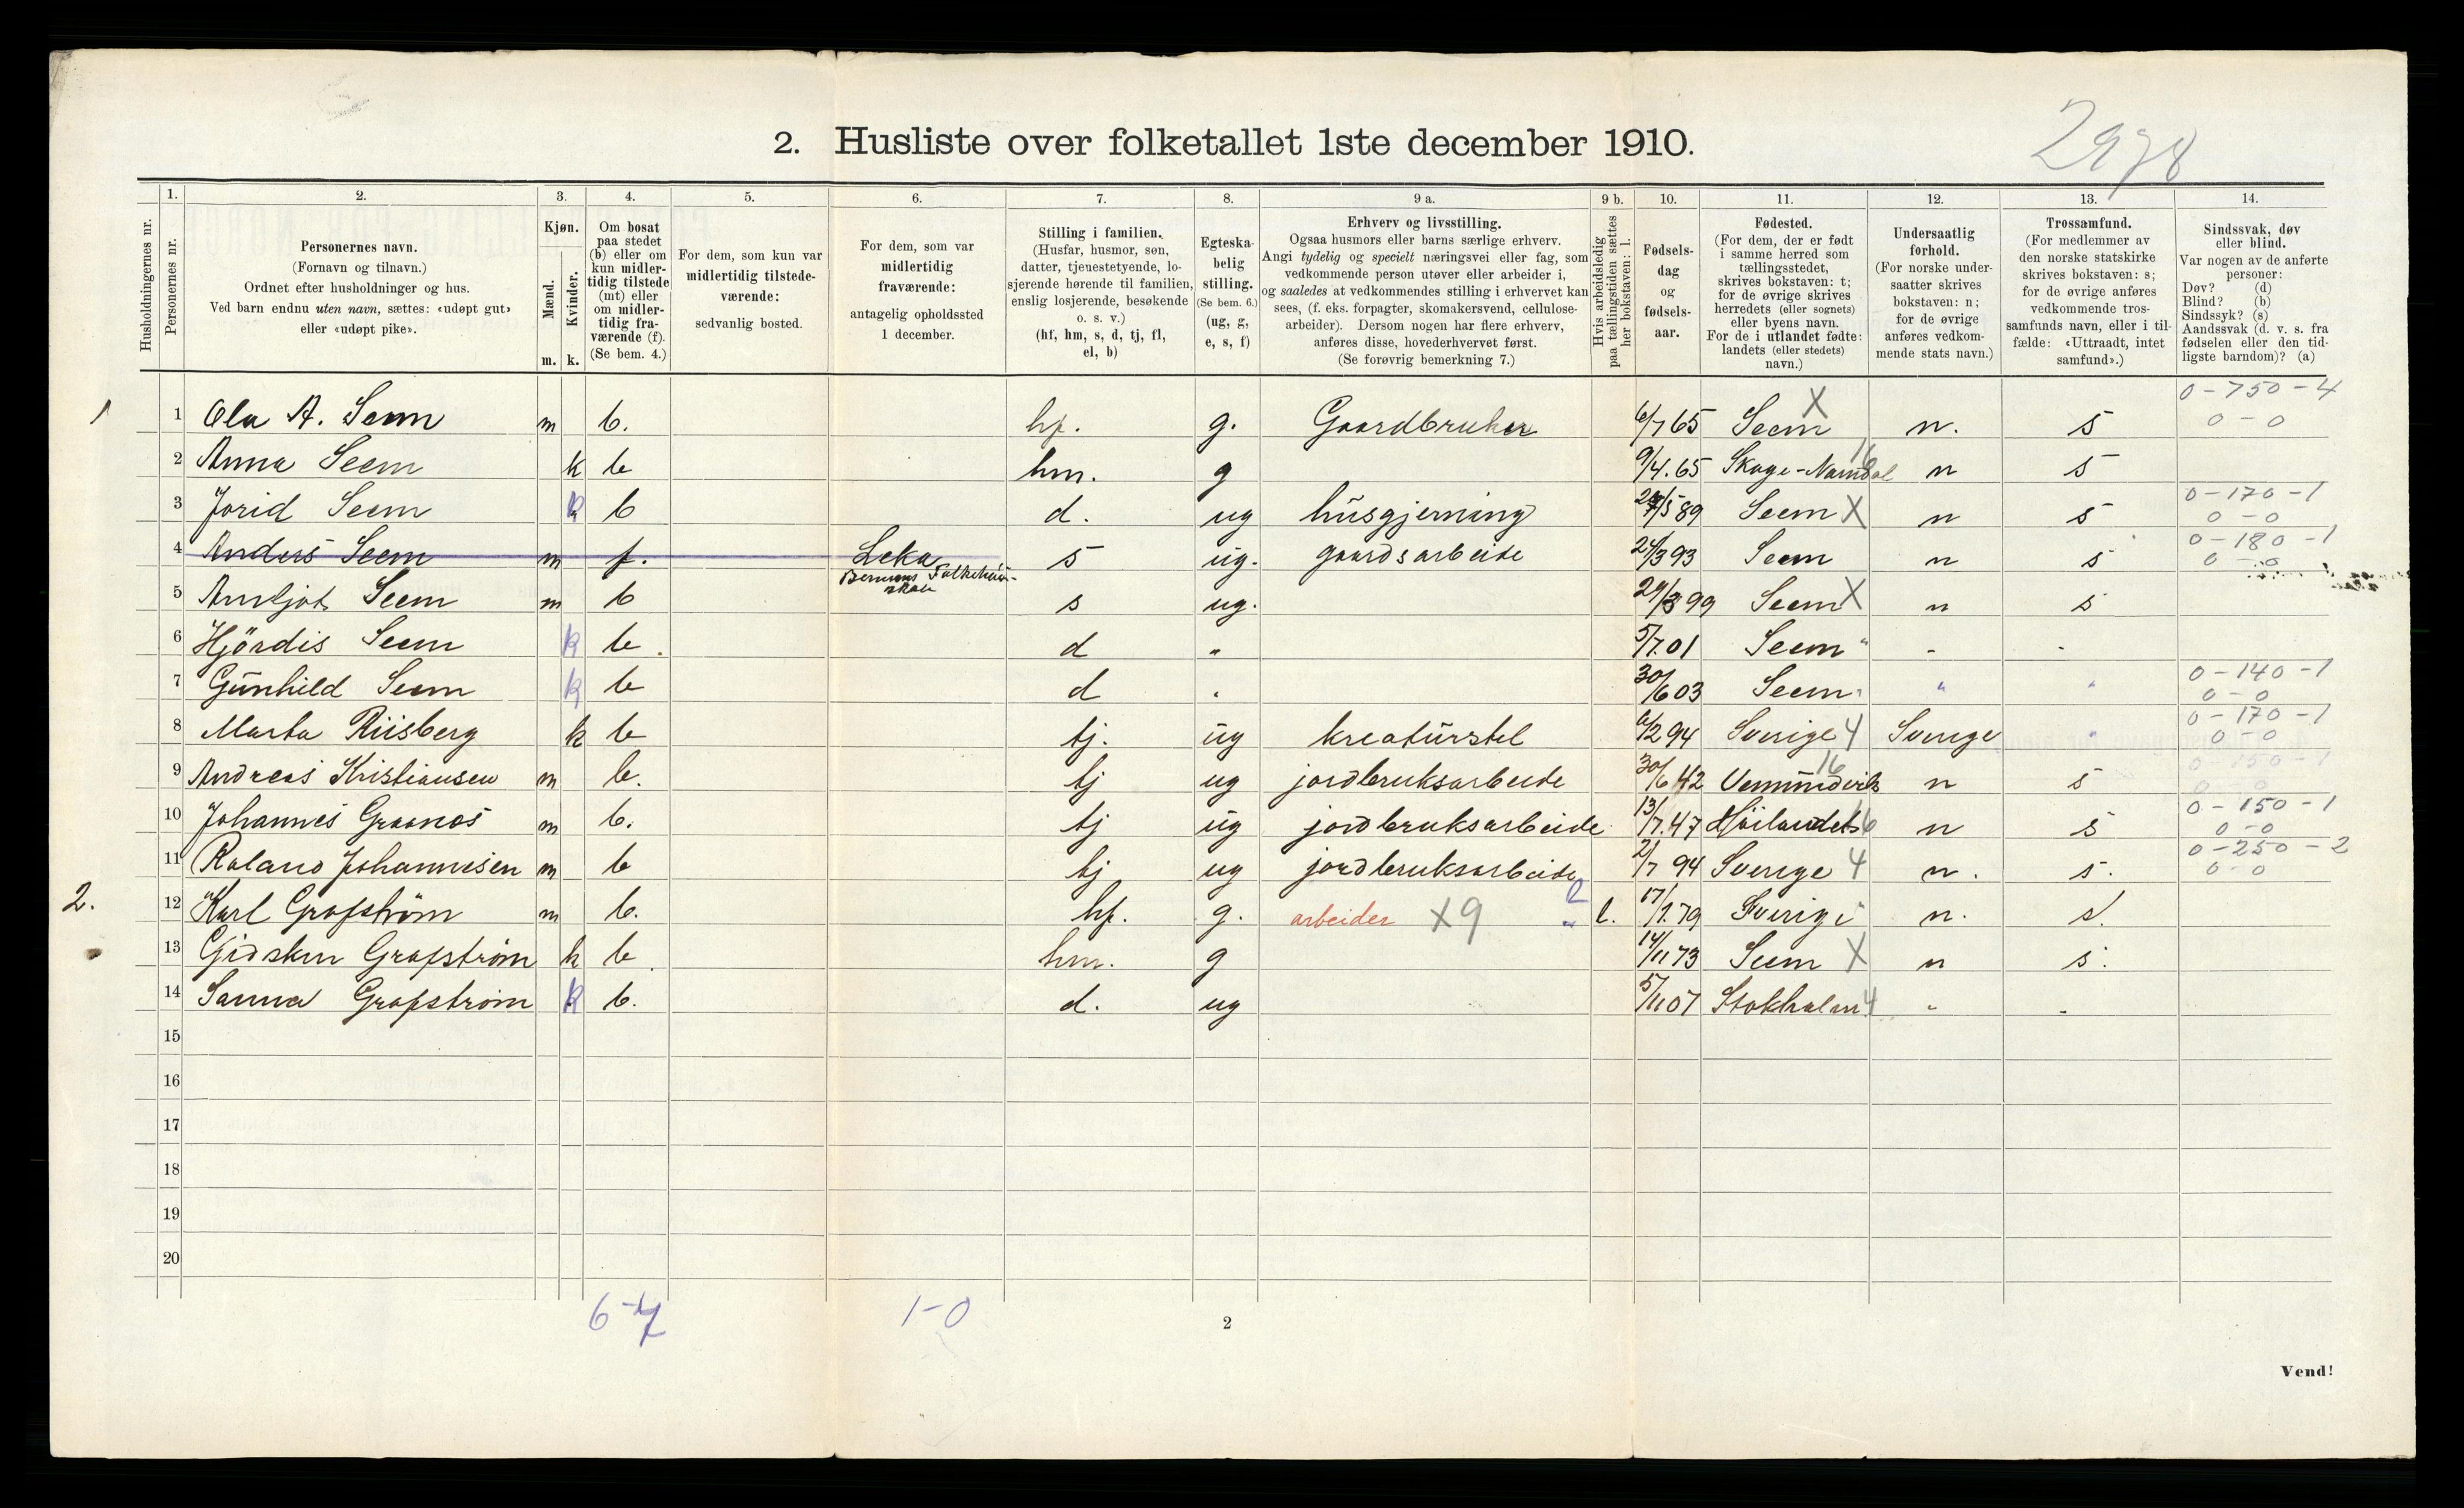 2. Husliste over folketallet 1ste december 1910.
2978
Husholdningernes nr.
1. Personernes nr.
2. Personernes navn.
(Fornavn og tilnavn.)
Ordnet efter husholdninger og hus.
Ved barn endnu uten navn, sættes: «udøpt gut»
eller «udøpt pike».
3. Kjøn.
Mænd. Kvinder.
m. k.
4. Om bosat
paa stedet
(b) eller om
kun midler-
tidig tilstede
(mt) eller
om midler-
tidig fra-
værende (f).
(Se bem. 4.)
5. For dem, som kun var
midlertidig tilstede-
værende:
sedvanlig bosted.
6. For dem, som var
midlertidig
fraværende:
antagelig opholdssted
1 december.
7. Stilling i familien.
(Husfar, husmor, søn,
datter, tjenestetyende, lo-
sjerende hørende til familien,
enslig losjerende, besøkende
o. s. v.)
(hf, hm, s, d, tj, fl,
el, b)
8. Egteska-
belig
stilling.
(Se bem. 6.)
(ug, g,
e, s, f)
9 a. Erhverv og livsstilling.
Ogsaa husmors eller barns særlige erhverv.
Angi tydelig og specielt næringsvei eller fag, som
vedkommende person utøver eller arbeider i,
og saaledes at vedkommendes stilling i erhvervet kan
sees, (f. eks. forpagter, skomakersvend, cellulose-
arbeider). Dersom nogen har flere erhverv,
anføres disse, hovederhvervet først.
(Se forøvrig bemerkning 7.)
9 b. Hvis arbeidsledig
paa tællingstiden sættes
her bokstaven: l.
10. Fødsels-
dag
og
fødsels-
aar.
11. Fødested.
(For dem, der er født
i samme herred som
tællingsstedet,
skrives bokstaven: t;
for de øvrige skrives
herredets (eller sognets)
eller byens navn.
For de i utlandet fødte:
landets (eller stedets)
navn.)
12. Undersaatlig
forhold.
(For norske under-
saatter skrives
bokstaven: n;
for de øvrige
anføres vedkom-
mende stats navn.)
13. Trossamfund.
(For medlemmer av
den norske statskirke
skrives bokstaven: s;
for de øvrige anføres
vedkommende tros-
samfunds navn, eller i til-
fælde: «Uttraadt, intet
samfund».)
14. Sindssvak, døv
eller blind.
Var nogen av de anførte
personer:
Døv? (d)
Blind? (b)
Sindssyk? (s)
Aandssvak (d. v. s. fra
fødselen eller den tid-
ligste barndom)? (a)
1 1 Ola A. Seem m b. hf. g. Gaardbruker 6/7 65 Seem X n. s 0-750-4 0-0
2 Anna Seem k b hm. g 9/4.65 Skage-Namdal 16 n s
3 Jorid Seem k b d. ug husgjerning /5 89 Seem X n s 0-170-1 0-0
4 Anders Seem m f. Leka Folkehøi- skole s ug. gaardsarbeide 24/3 93 Seem n s 0-180-1 0-0
5 Arnljot Seem m b s ug. 29/3 99 Seem X n s
6 Hjördis Seem k b. d " 5/7.01 Seem " - -
7 Gunhild Seem k b d " 30/6 03 Seem " " " 0-140-1 0-0
8 Marta Riisberg k b tj. ug kreaturstel 6/2 94 Sverige 4 Sverige " 0-170-1 0-0
9 Andreas Kristiansen m b. tj ug jordbruksarbeide 30/6 42 Vemundvik 16 n s 0-150-1 0-0
10 Johannes Graanes m b. tj ug jordbruksarbeide 13/7.47 Høilandet 16 n s 0-150-1 0-0
11 Roland Johannesen m b tj ug jordbruksarbeide 2/7 94 Sverige 4 n. s. 0-250-2 0-0
2. 12 Karl Grafström m b. hf. g. arbeider X9 l. 17/1.79 Sverige n. s.
13 Gidsken Grafström k b hm. g 14/11 73 Seem X n s.
14 Sanna Grafström k b. d. ug 5/11 07 Stokholm 4 - -
15
16
17
18
19
20
6-7 1-0
2
Vend!